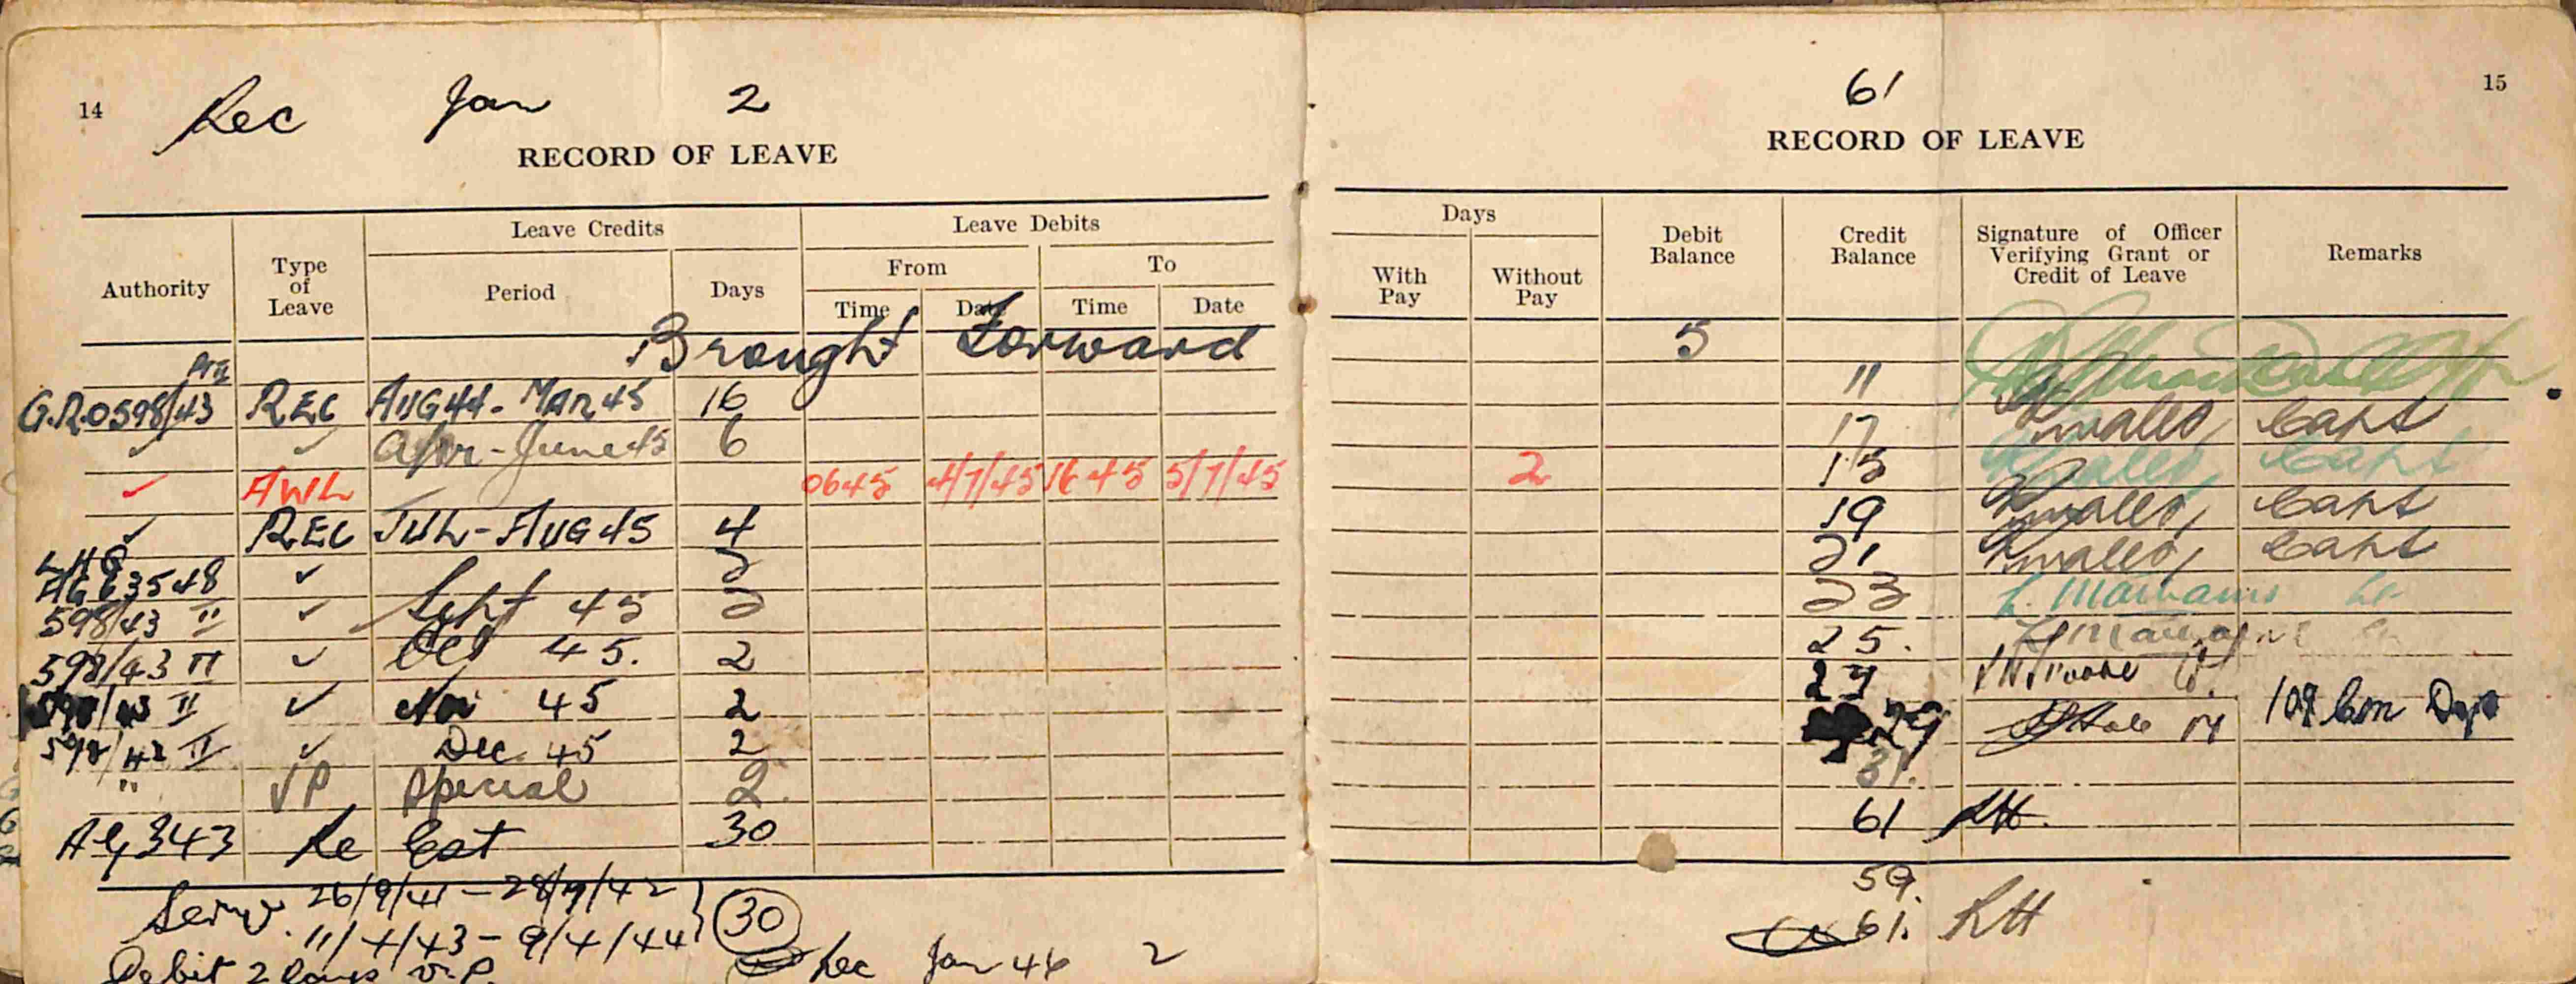 14
Rec Jan 2
RECORD OF LEAVE
Authority
Type of Leave
Leave Credits
Period
Days
Leave Debits
From
To
Time
Date
Time
Date
Brought Forward
G.R.O 598/43 REC AUG 44 - MAR 45 16
✓ ✓ Apr - June 45 6
✓ AWL 0645 4/7/45 1645 5/7/45
✓ REC JUL - AUG 45 4
LHQ
AG 63548 ✓ 2
598/43 II ✓ Sept 45 2
598/43 II ✓ Oct 45. 2
598/43 II ✓ Nov 45 2
598/43 II ✓ Dec. 45 2
" VP Special 2.
AG 343 Re Cat 30
Serv. 26/9/41 - 28/9/42
11/4/43 - 9/4/44 30
Debit 2 Days V.P.
Rec Jan 46 2
61
15
RECORD OF LEAVE
Days
With Pay
Without Pay
Debit Balance
Credit Balance
Signature of Officer Verifying Grant or Credit of Leave
Remarks
5
11
17 Capt
2 15 Capt
19 Capt
21 Capt
23
25.
27
29 109 Con Dep
31.
61 RH.
59.
61. RH